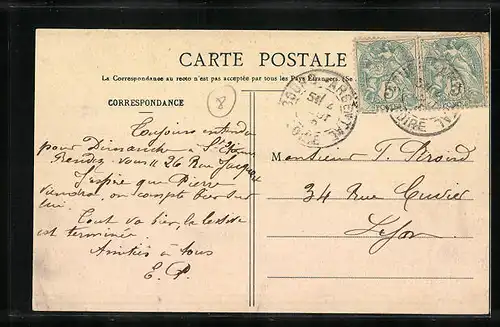 CARTE POSTALE
La Correspondance au recto n'est pas acceptée par tous les Pays Étrangers. (Se
CORRESPONDANCE
8
Toujours entendu
pour Dimanche à St
Rendez-vous 26 Rue
J'espère que Pierre
viendra, on compte bien sur
lui.
Tout va bien, la lessive
est terminée.
Amitiés à tous
E. P.
BOURG-ARGENTAL
LOIRE
5
5
LOIRE
Monsieur
34 Rue Cuvier
Lyon